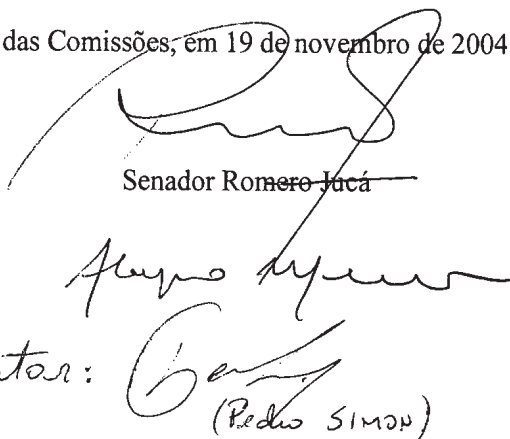 das Comissões, em 19 de novembro de 2004
Senador Romero Jucá
tor:
(Pedro SIMON)